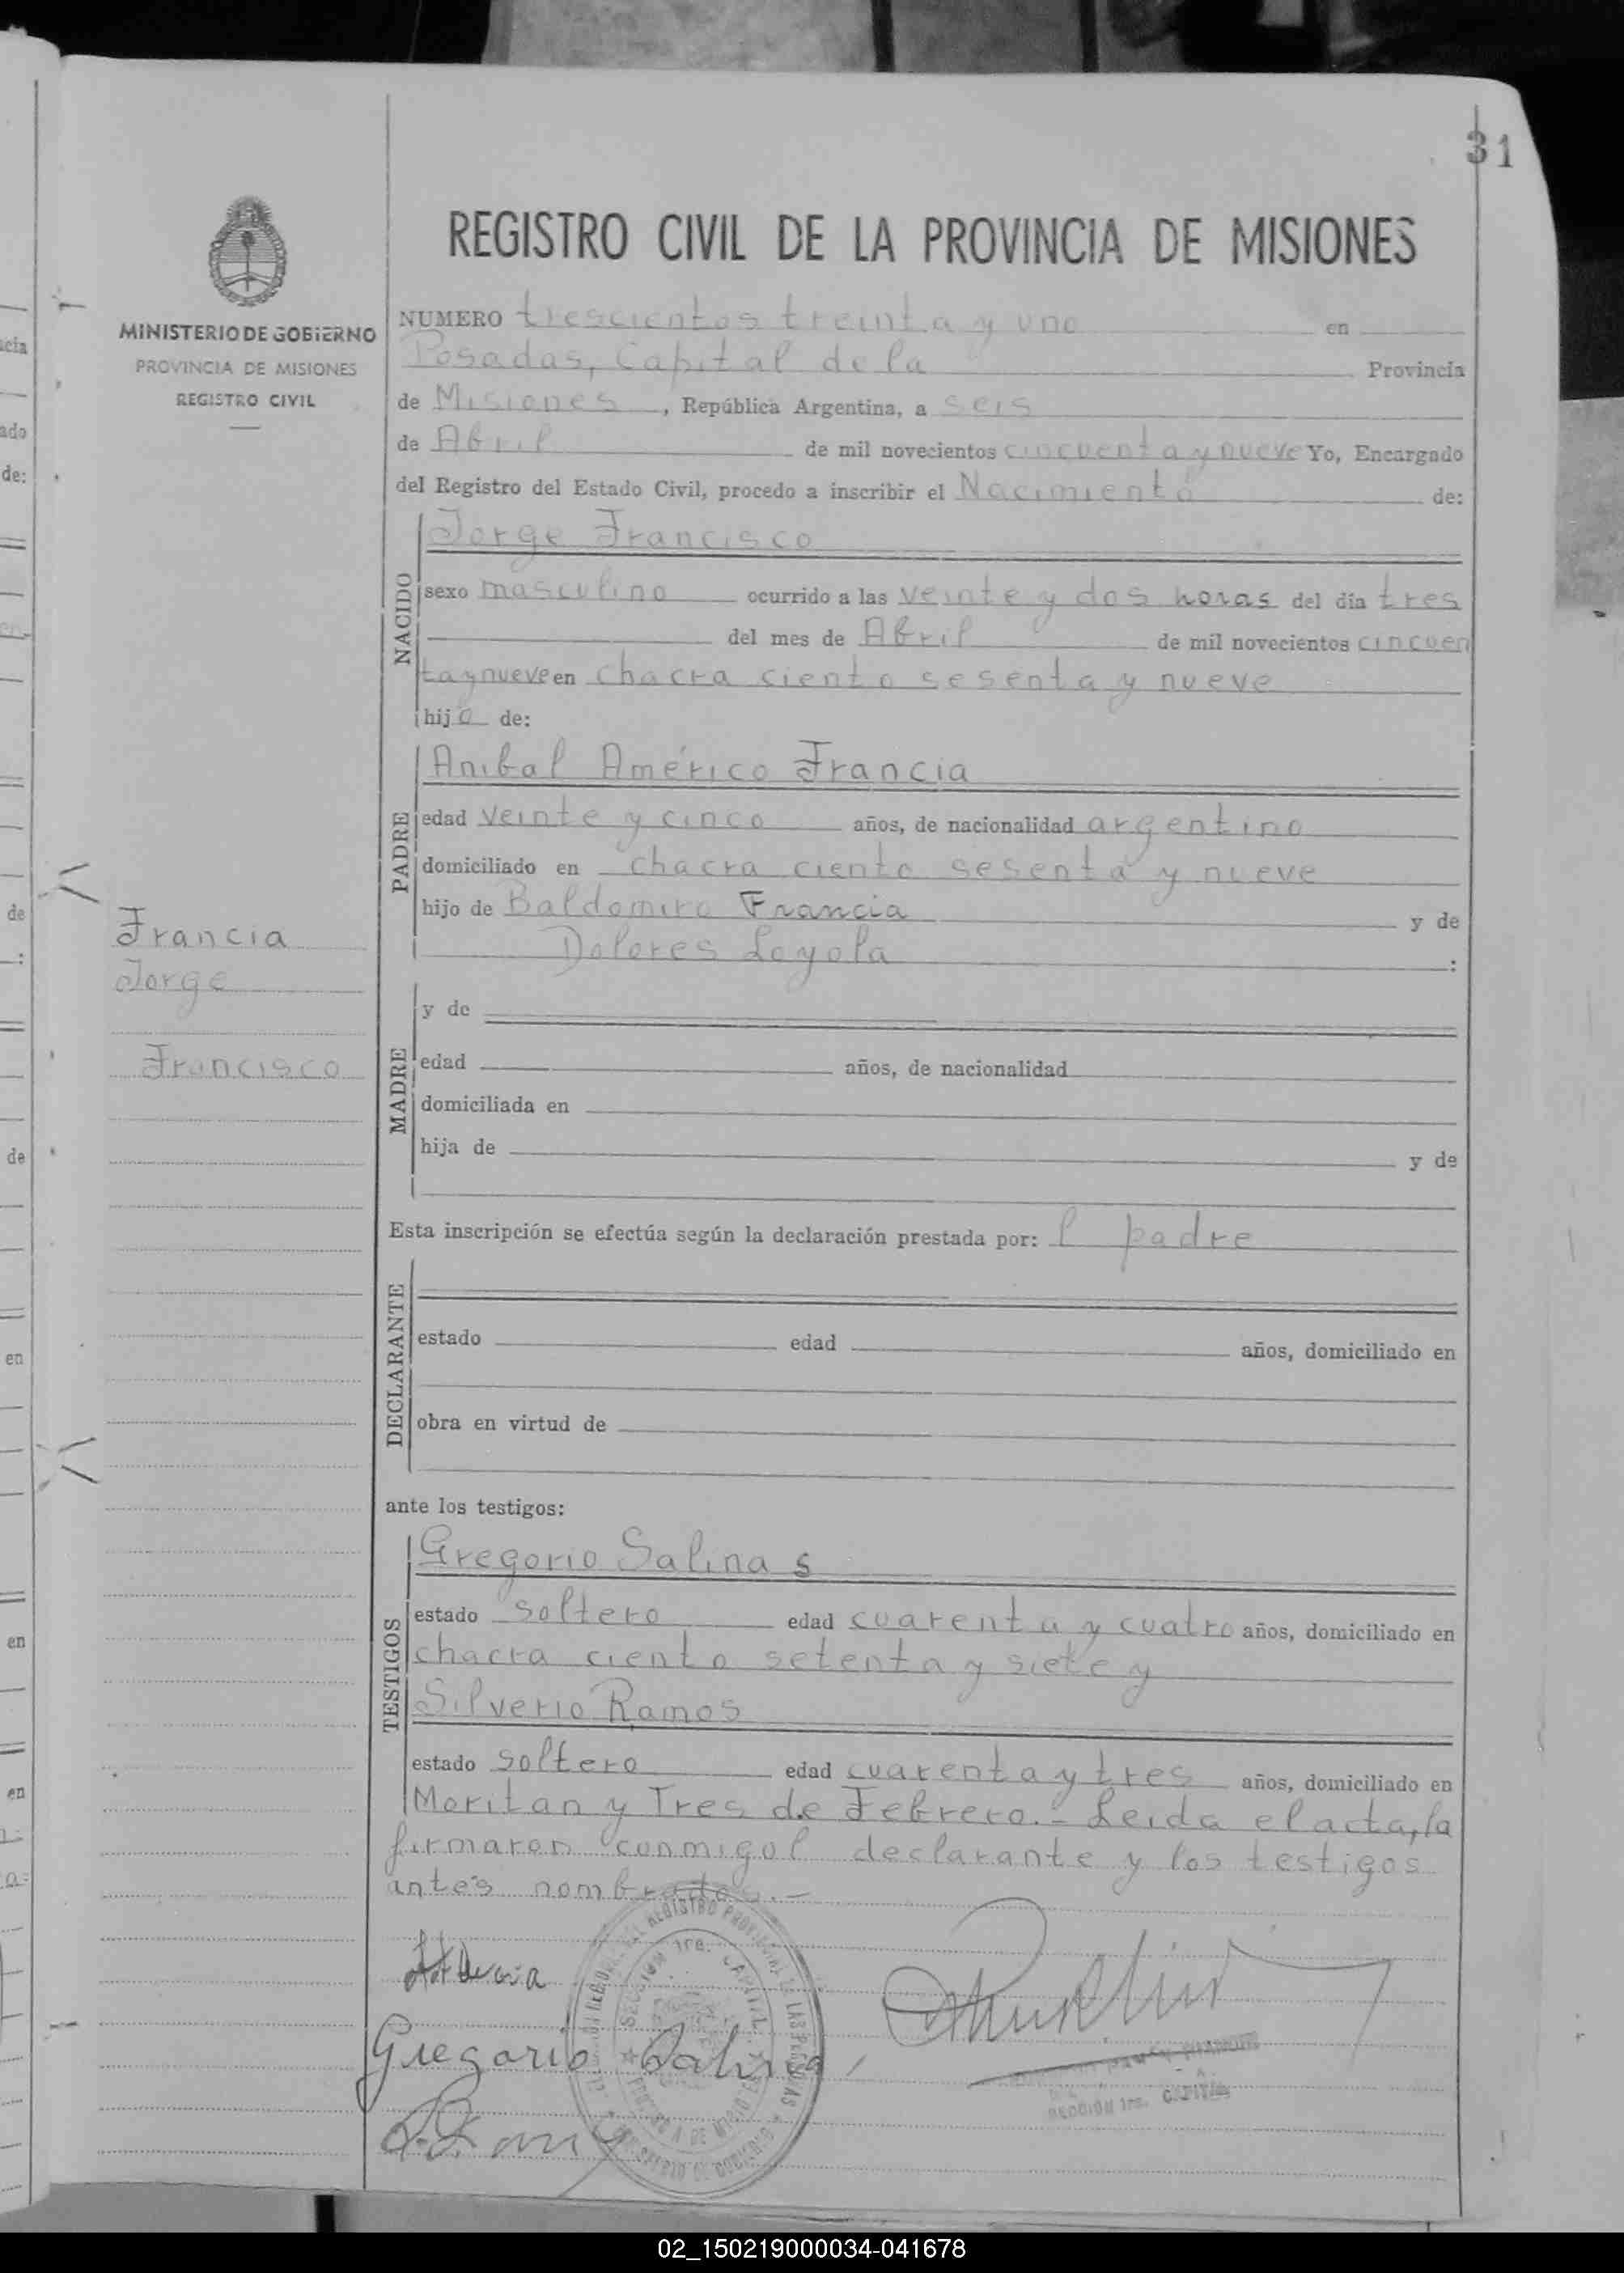 31
REGISTRO CIVIL DE LA PROVINCIA DE MISIONES
MINISTERIO DE GOBIERNO
PROVINCIA DE MISIONES
REGISTRO CIVIL
NUMERO trescientos treinta y uno en
Posadas, Capital de la Provincia
de Misiones, República Argentina, a seis
de Abril de mil novecientos cincuenta y nueve Yo, Encargado
del Registro del Estado Civil, procedo a inscribir el Nacimiento de:
NACIDO
Jorge Francisco
sexo masculino ocurrido a las veinte y dos horas del día tres
del mes de Abril de mil novecientos cincuen
ta y nueve en chacra ciento sesenta y nueve
hijo de:
PADRE
Anibal Américo Francia
edad veinte y cinco años, de nacionalidad argentino
domiciliado en chacra ciento sesenta y nueve
hijo de Baldomiro Francia y de
Dolores Loyola :
Francia
Jorge
Francisco
MADRE
y de
edad años, de nacionalidad
domiciliada en
hija de y de
Esta inscripción se efectúa según la declaración prestada por: l padre
DECLARANTE
estado edad años, domiciliado en
obra en virtud de
ante los testigos:
TESTIGOS
Gregorio Salinas
estado soltero edad cuarenta y cuatro años, domiciliado en
chacra ciento setenta y siete y
Silverio Ramos
estado soltero edad cuarenta y tres años, domiciliado en
Moritan y Tres de Febrero.- Leida el acta, la
firmaron conmigo l declarante y los testigos
antes nombrados.-
Gregorio Salina
SECCION 1ra. CAPITAL
SECCION 1ra. CAPITAL
02_150219000034-041678